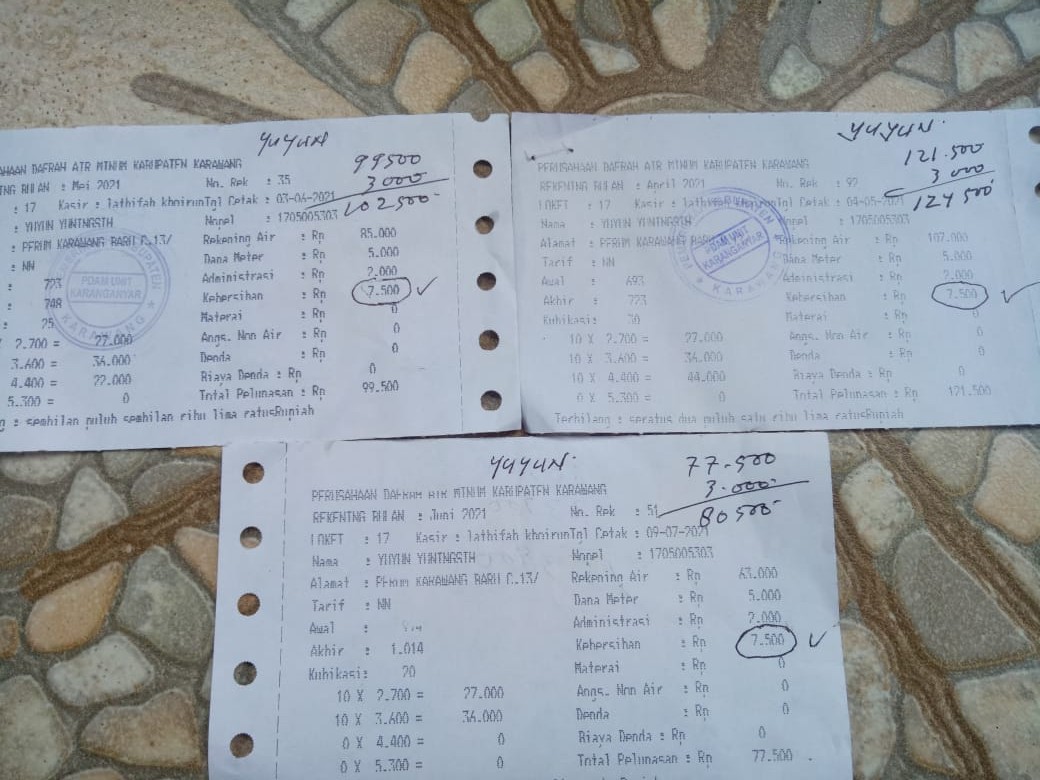 YUYUN
99500
3000
102500
PERUSAHAAN DAERAH AIR MINUM KABUPATEN KARAWANG
REKENING BULAN : Mei 2021 No. Rek : 35
: 17 Kasir : lathifah khoirunTgl Cetak : 03-06-2021
: YUYUN YUNINGSIH Nopel : 1705005303
: PERUM KARAWANG BARU C.13/ Rekening Air : Rp 85.000
Dana Meter : Rp 5.000
: NN Administrasi : Rp 2.000
: 723 Kebersihan : Rp 7.500
: 748 Materai : Rp 0
: 25 Angs. Non Air : Rp 0
X 2.700 = 27.000 Denda : Rp 0
3.600 = 36.000 Biaya Denda : Rp 0
4.400 = 22.000 Total Pelunasan : Rp 99.500
5.300 = 0
: sembilan puluh sembilan ribu lima ratusRupiah
PDAM UNIT
KARANGANYAR
KARAWANG
YUYUN.
121.500
3000
124500
PERUSAHAAN DAERAH AIR MINUM KABUPATEN KARAWANG
REKENING BULAN : April 2021 No. Rek : 92
LOKET : 17 Kasir : lathifah khoirunTgl Cetak : 04-05-2021
Nama : YUYUN YUNINGSIH Nopel : 1705005303
Alamat : PERUM KARAWANG BARU Rekening Air : Rp 107.000
Tarif : NN Dana Meter : Rp 5.000
Awal : 693 Administrasi : Rp 2.000
Akhir : 723 Kebersihan : Rp 7.500
Kubikasi: 30 Materai : Rp 0
10 X 2.700 = 27.000 Angs. Non Air : Rp 0
10 X 3.600 = 36.000 Denda : Rp 0
10 X 4.400 = 44.000 Biaya Denda : Rp 0
0 X 5.300 = 0 Total Pelunasan : Rp 121.500
Terbilang : seratus dua puluh satu ribu lima ratusRupiah
PDAM UNIT
KARANGANYAR
KARAWANG
YUYUN.
77.500
3.000
80500
PERUSAHAAN DAERAH AIR MINUM KABUPATEN KARAWANG
REKENING BULAN : Juni 2021 No. Rek : 51
LOKET : 17 Kasir : lathifah khoirunTgl Cetak : 09-07-2021
Nama : YUYUN YUNINGSIH Nopel : 1705005303
Alamat : PERUM KARAWANG BARU C.13/ Rekening Air : Rp 63.000
Tarif : NN Dana Meter : Rp 5.000
Awal : Administrasi : Rp 2.000
Akhir : 1.014 Kebersihan : Rp 7.500
Kubikasi: 20 Materai : Rp 0
10 X 2.700 = 27.000 Angs. Non Air : Rp 0
10 X 3.600 = 36.000 Denda : Rp 0
0 X 4.400 = 0 Biaya Denda : Rp 0
0 X 5.300 = 0 Total Pelunasan : Rp 77.500